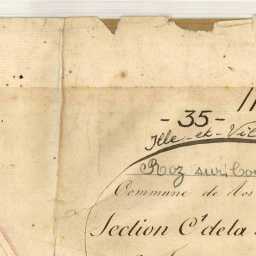 - 35 -
Ille-et-Vil
Roz sur Cou
Commune de Ros
Section C^t de la